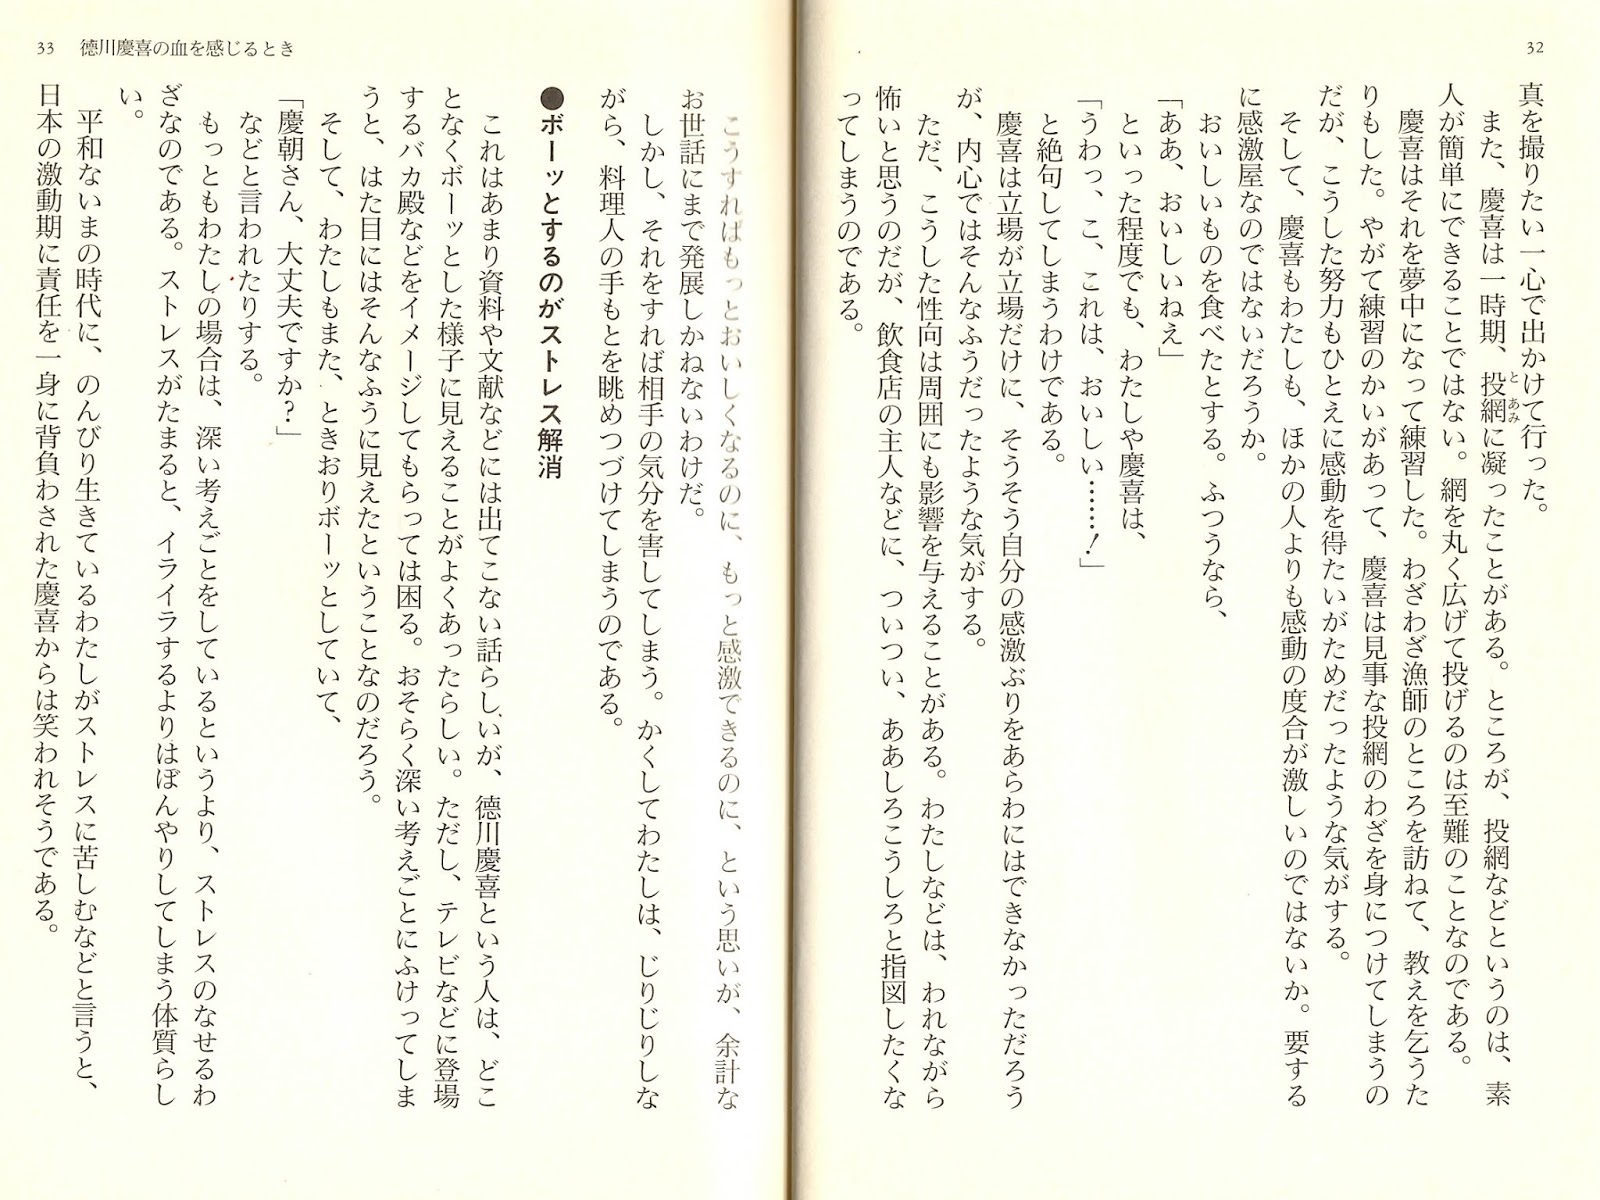 32
真を撮りたい一心で出かけて行った。
また、慶喜は一時期、投網に凝ったことがある。ところが、投網などというのは、素
とあみ
人が簡単にできることではない。網を丸く広げて投げるのは至難のことなのである。
慶喜はそれを夢中になって練習した。わざわざ漁師のところを訪ねて、教えを乞うた
りもした。やがて練習のかいがあって、慶喜は見事な投網のわざを身につけてしまうの
だが、こうした努力もひとえに感動を得たいがためだったような気がする。
そして、慶喜もわたしも、ほかの人よりも感動の度合が激しいのではないか。要する
に感激屋なのではないだろうか。
おいしいものを食べたとする。ふつうなら、
「ああ、おいしいねえ」
といった程度でも、わたしや慶喜は、
「うわっ、こ、これは、おいしい……！」
と絶句してしまうわけである。
慶喜は立場が立場だけに、そうそう自分の感激ぶりをあらわにはできなかっただろう
が、内心ではそんなふうだったような気がする。
ただ、こうした性向は周囲にも影響を与えることがある。わたしなどは、われながら
怖いと思うのだが、飲食店の主人などに、ついつい、ああしろこうしろと指図したくな
ってしまうのである。
33 徳川慶喜の血を感じるとき
こうすればもっとおいしくなるのに、もっと感激できるのに、という思いが、余計な
お世話にまで発展しかねないわけだ。
しかし、それをすれば相手の気分を害してしまう。かくしてわたしは、じりじりしな
がら、料理人の手もとを眺めつづけてしまうのである。
●ボーッとするのがストレス解消
これはあまり資料や文献などには出てこない話らしいが、徳川慶喜という人は、どこ
となくボーッとした様子に見えることがよくあったらしい。ただし、テレビなどに登場
するバカ殿などをイメージしてもらっては困る。おそらく深い考えごとにふけってしま
うと、はた目にはそんなふうに見えたということなのだろう。
そして、わたしもまた、ときおりボーッとしていて、
「慶朝さん、大丈夫ですか？」
などと言われたりする。
もっともわたしの場合は、深い考えごとをしているというより、ストレスのなせるわ
ざなのである。ストレスがたまると、イライラするよりはぼんやりしてしまう体質らし
い。
平和ないまの時代に、のんびり生きているわたしがストレスに苦しむなどと言うと、
日本の激動期に責任を一身に背負わされた慶喜からは笑われそうである。